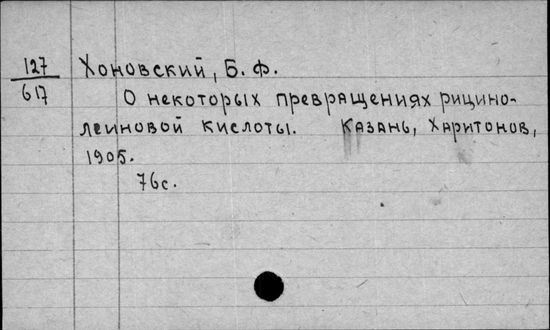 127 Хоновский, Б. Ф.
617
О некоторых превращениях рицино-
леиновой кислоты. Казань, Харитонов,
1905.
76с.